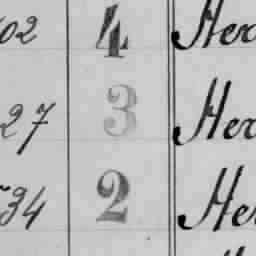 02 4 Her
27 3 Her
34 2 Her